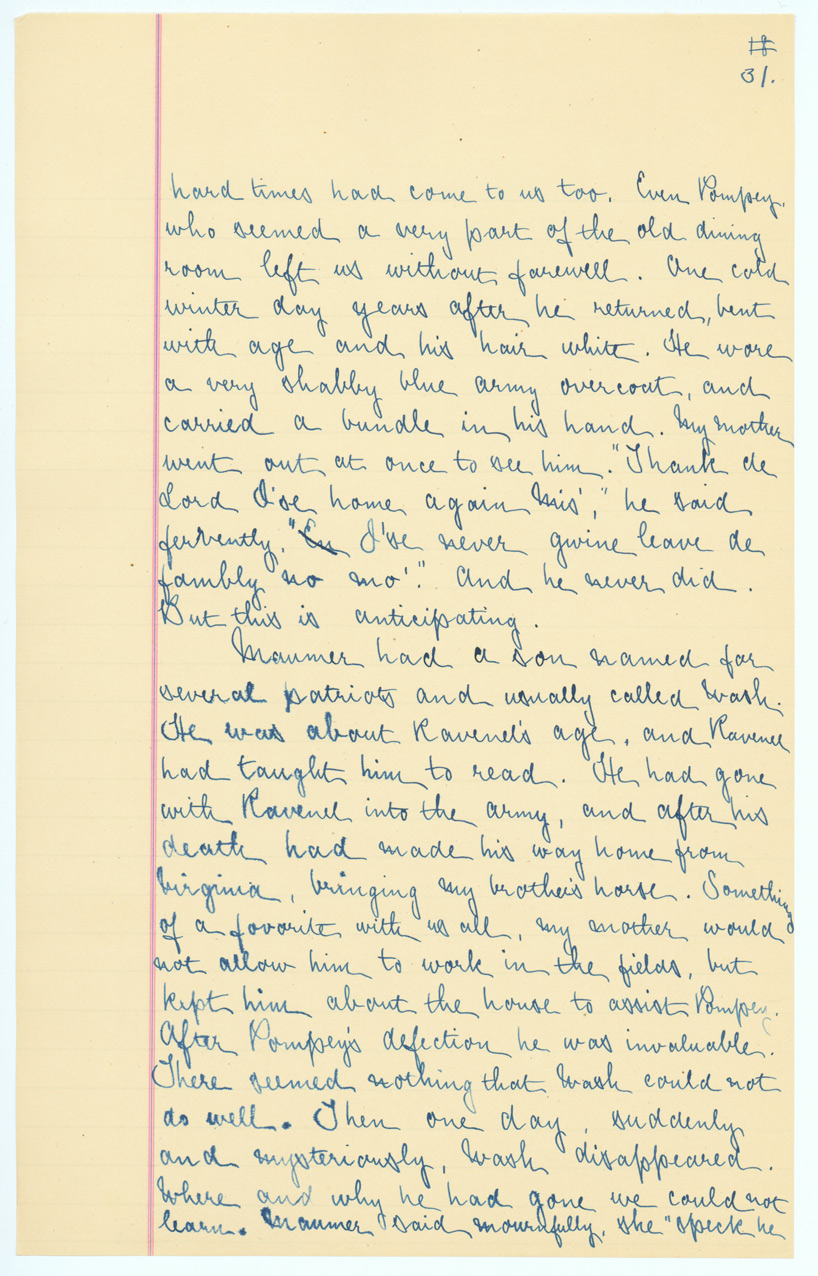 18
31.
hard times had come to us too. Even Pompey,
who seemed a very part of the old dining
room left us without farewell. One cold
winter day years after he returned, bent
with age and his hair white. He wore
a very shabby blue army overcoat, and
carried a bundle in his hand. My mother
went out at once to see him. "Thank de
Lord I'se home again Mis'," he said
fervently, "En I'se never gwine leave de
fambly no mo'." And he never did.
But this is anticipating.
Maumer had a son named for
several patriots and usually called Wash.
He was about Ravenel's age, and Ravenel
had taught him to read. He had gone
with Ravenel into the army, and after his
death had made his way home from
Virginia, bringing my brother's horse. Something
of a favorite with us all, my mother would
not allow him to work in the fields, but
kept him about the house to assist Pompey.
After Pompey's defection he was invaluable.
There seemed nothing that Wash could not
do well. Then one day, suddenly
and mysteriously, Wash disappeared.
Where and why he had gone we could not
learn. Maumer said mournfully, she "speck he